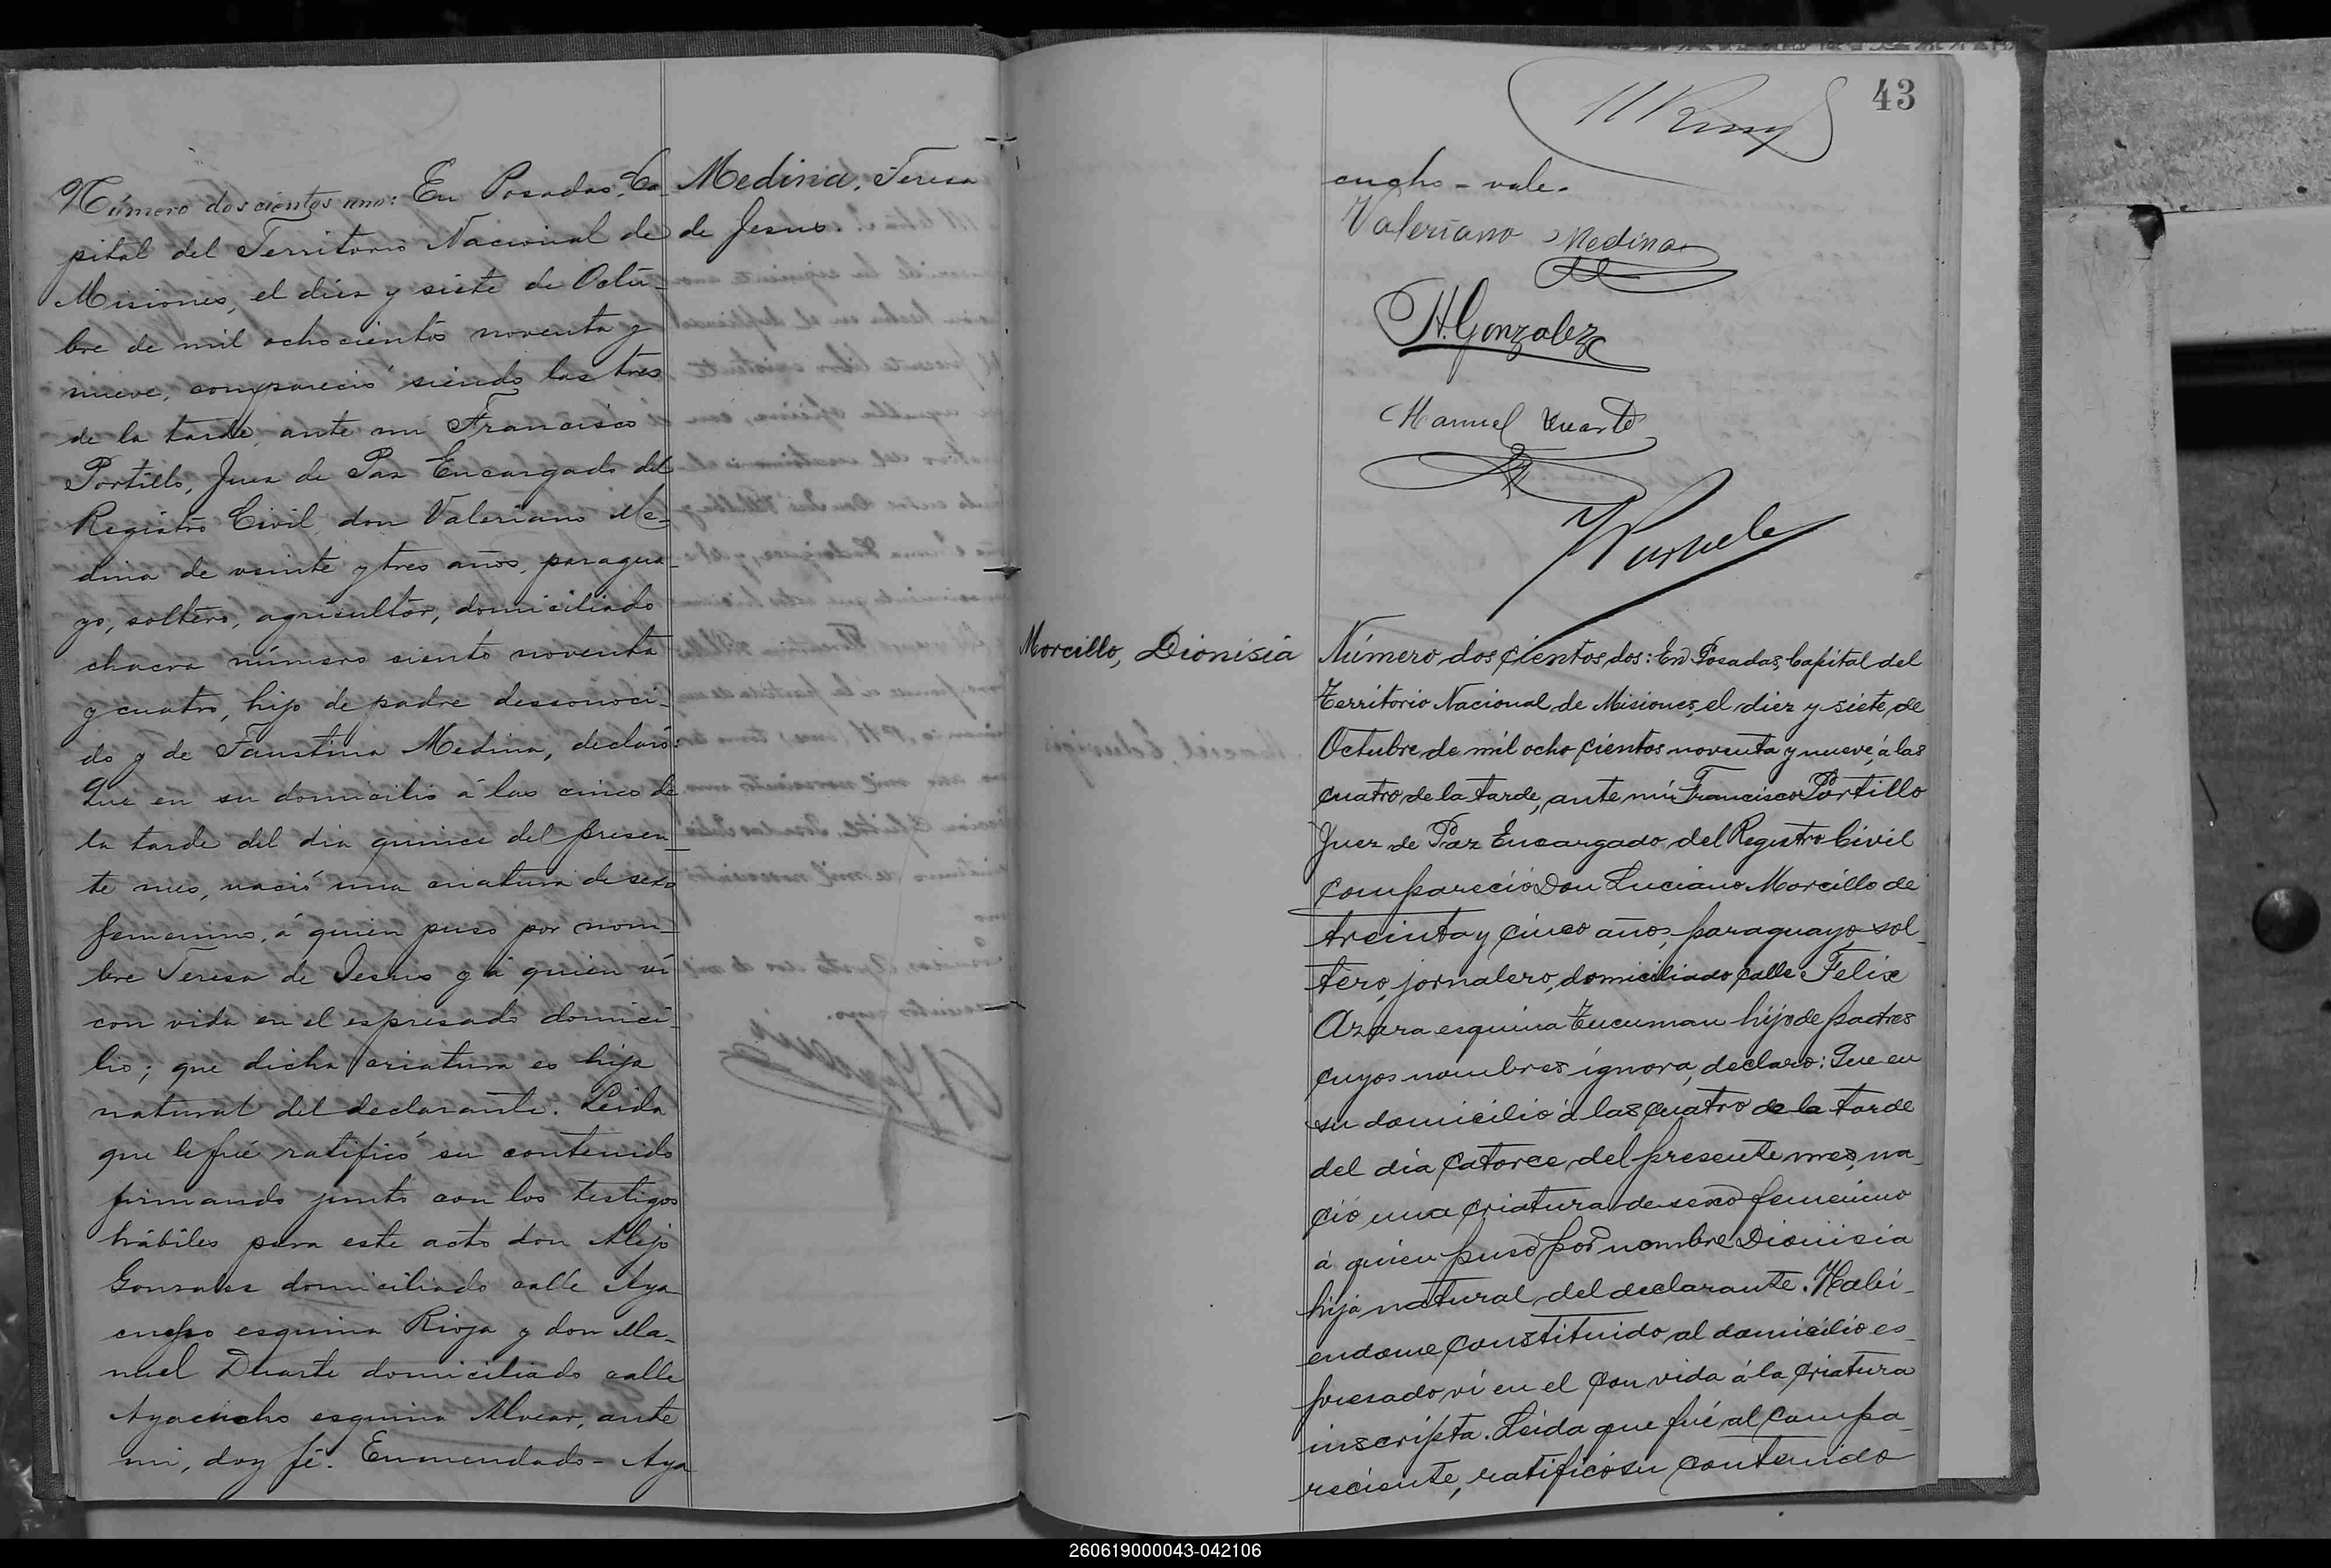 Número doscientos uno: En Posadas, Ca-
pital del Territorio Nacional de
Misiones, el diez y siete de Octu-
bre de mil ochocientos noventa y
nueve, compareció siendo las tres
de la tarde, ante mi Francisco
Portillo, Juez de Paz Encargado del
Registro Civil, don Valeriano Me-
dina de veinte y tres años, paragua-
yo, soltero, agricultor, domiciliado
chacra número siento noventa
y cuatro, hijo de padre desconoci-
do y de Faustina Medina, declaró:
Que en su domicilio á las cinco de
la tarde del dia quince del presen-
te mes, nació una criatura de sexo
femenino, á quien puso por nom-
bre Teresa de Jesus y á quien ví
con vida en el espresado domici-
lio; que dicha criatura es hija
natural del declarante. Leida
que le fué ratificó su contenido
firmando junto con los testigos
hábiles para este acto don Alejo
Gonzalez domiciliado calle Aya
cucho esquina Rioja y don Ma-
nuel Duarte domiciliado calle
Ayacucho esquina Alvear, ante
mi, doy fé. Enmendado - Aya
Medina, Teresa
de Jesus.
43
cucho - vale.
Valeriano Medina
H. Gonzalez
Manuel Duarte
Morcillo, Dionisia
Número dos cientos dos: En Posadas, Capital del
Territorio Nacional de Misiones, el diez y siete de
Octubre de mil ocho cientos noventa y nueve, á las
cuatro de la tarde, ante mí Francisco Portillo
Juez de Paz Encargado del Registro Civil
compareció Don Luciano Morcillo de
treinta y cinco años, paraguayo, sol-
tero, jornalero, domiciliado calle Felix
Azara esquina Tucuman hijo de padres
cuyos nombres ignora, declaro: Que en
su domicilio á las cuatro de la tarde
del día catorce del presente mes, na-
ció una criatura de sexo femenino
á quien puso por nombre Dionisia
hija natural del declarante. Habi-
endome constituido al domicilio es-
presado ví en el con vida á la criatura
inscripta. Leida que fué al compa-
reciente, ratificó su contenido
260619000043-042106